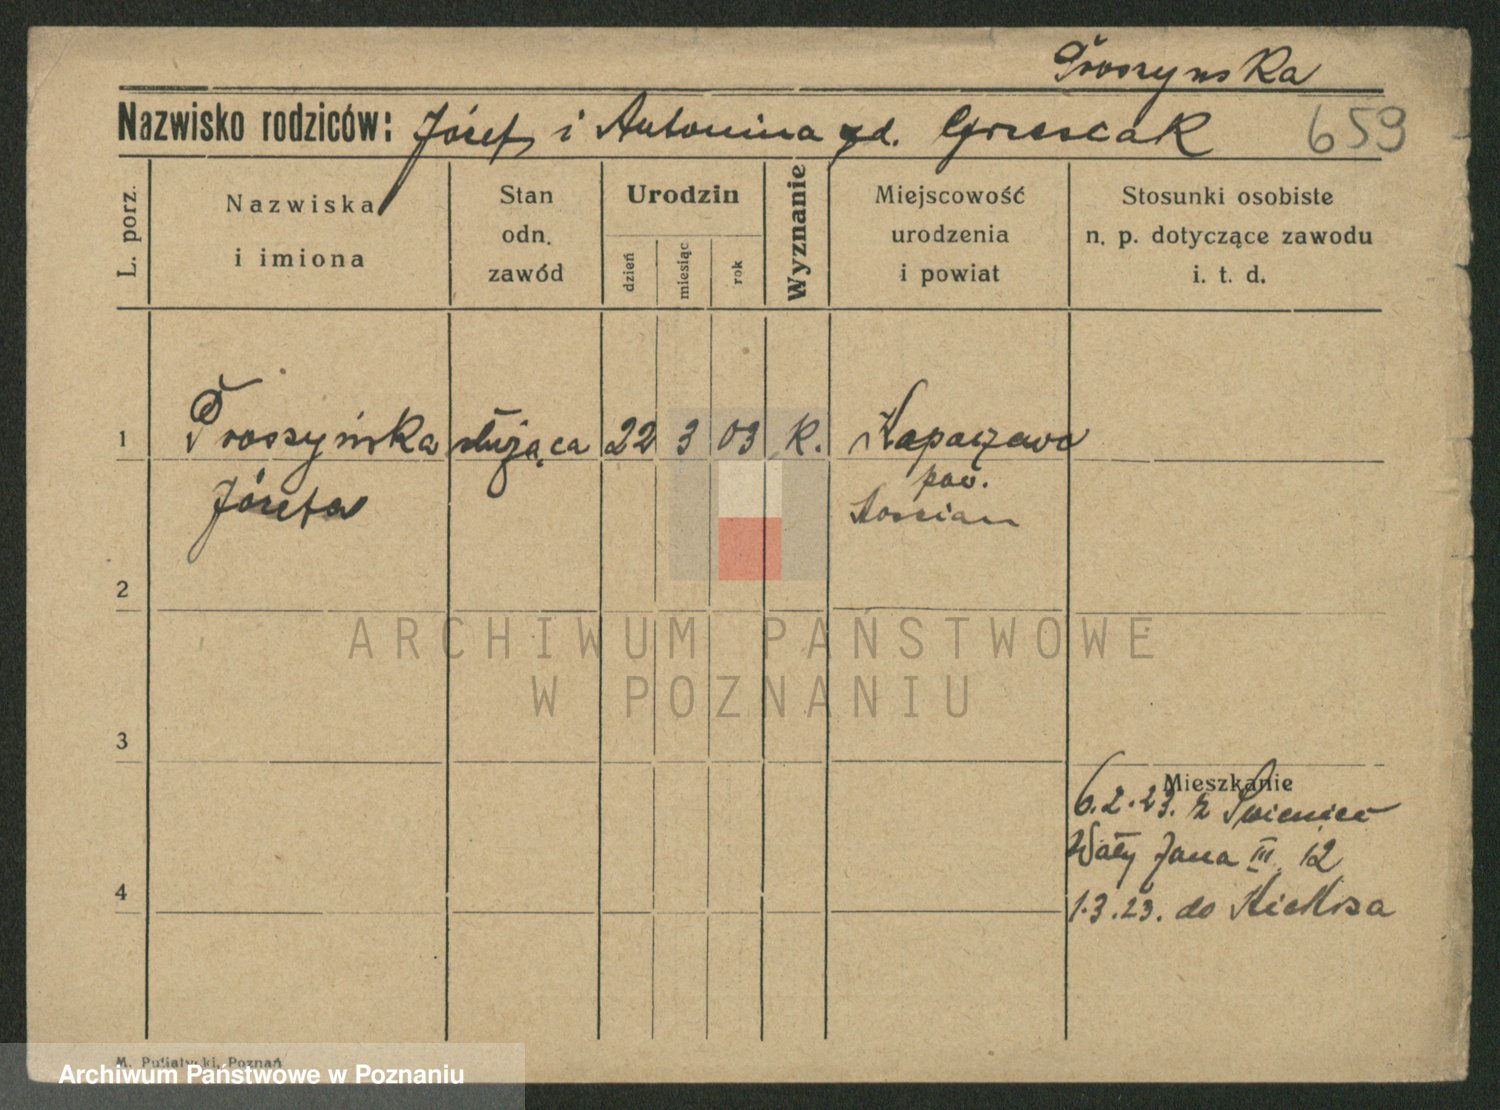 Proszynska
Nazwisko rodziców: Józef i Antonina zd. Grzescak 659
L. porz.
Nazwiska
i imiona
Stan
odn.
zawód
Urodzin
dzień
miesiąc
rok
Wyznanie
Miejscowość
urodzenia
i powiat
Stosunki osobiste
n. p. dotyczące zawodu
i. t. d.
1 Proszyńska służąca 22 3 03 K.
Józefa
pow.
Koscian
2
3
Mieszkanie
6.2.23. z
Wały Jana III 12
1.3.23. do Kiekrza
4
M. Putiatycki, Poznań
ARCHIWUM PAŃSTWOWE
W POZNANIU
Archiwum Państwowe w Poznaniu